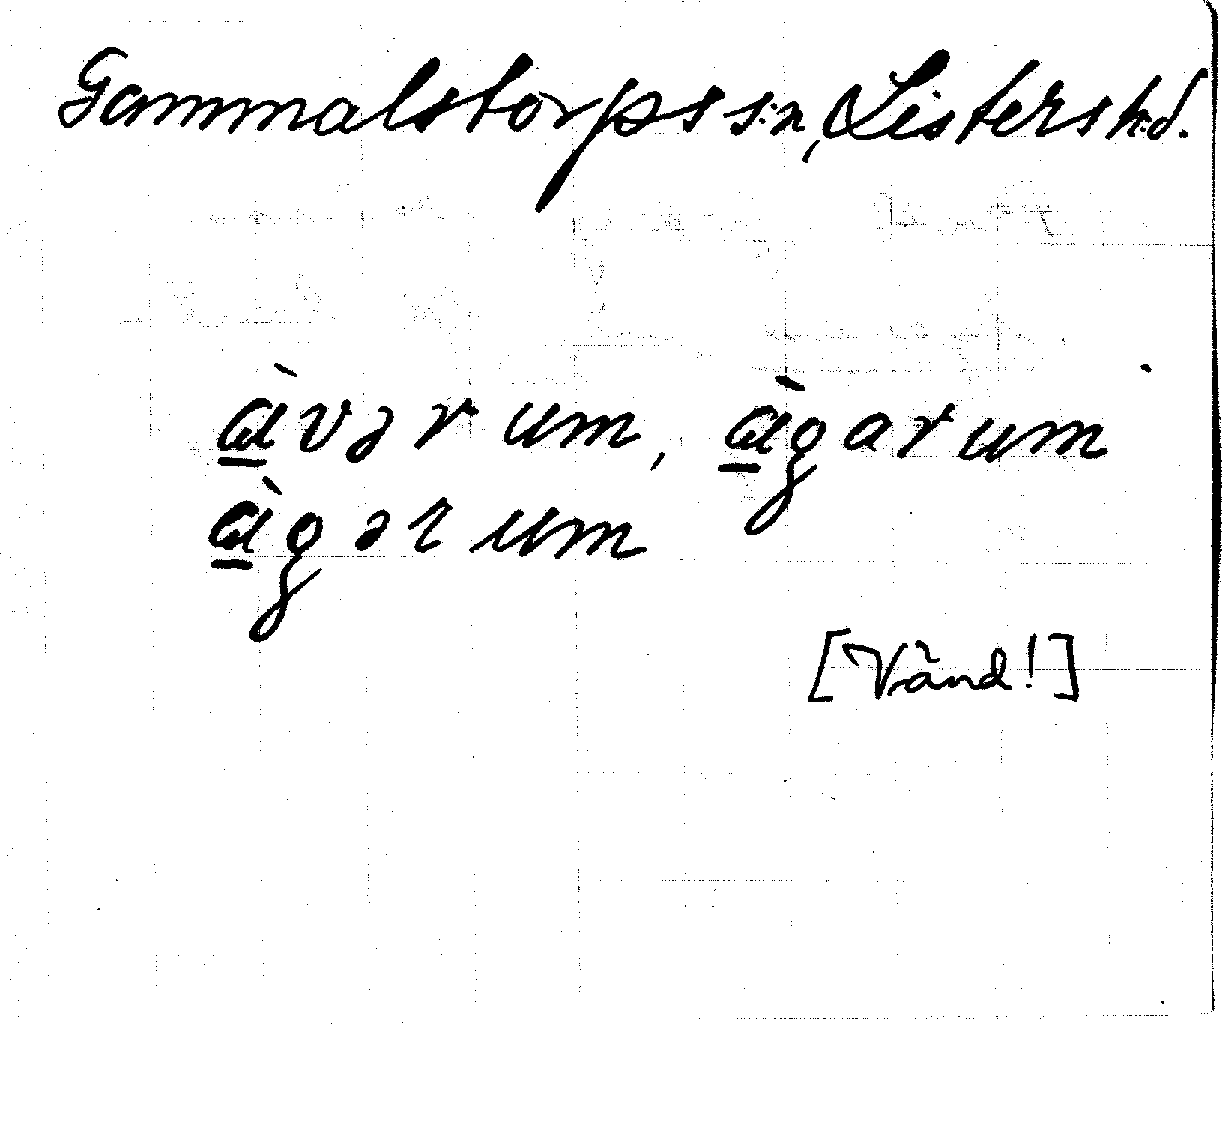 Gammalstorps s:n, Listers h:d.
à̱vərum, à̱garum
à̱gərum
[Vänd!]